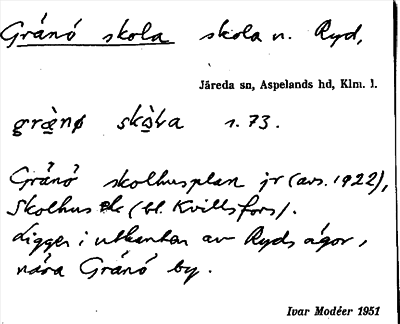 Gránó skola skola n. Ryd,
Järeda sn, Aspelands hd, Klm. l.
skò̠la 1.73.
Gránó skolhusplan jr (avs. 1922),
Skolhus (bl. Kvillsfors).
Ligger i utkanten av Ryds ägor,
nära Gránó by.
Ivar Modéer 1951